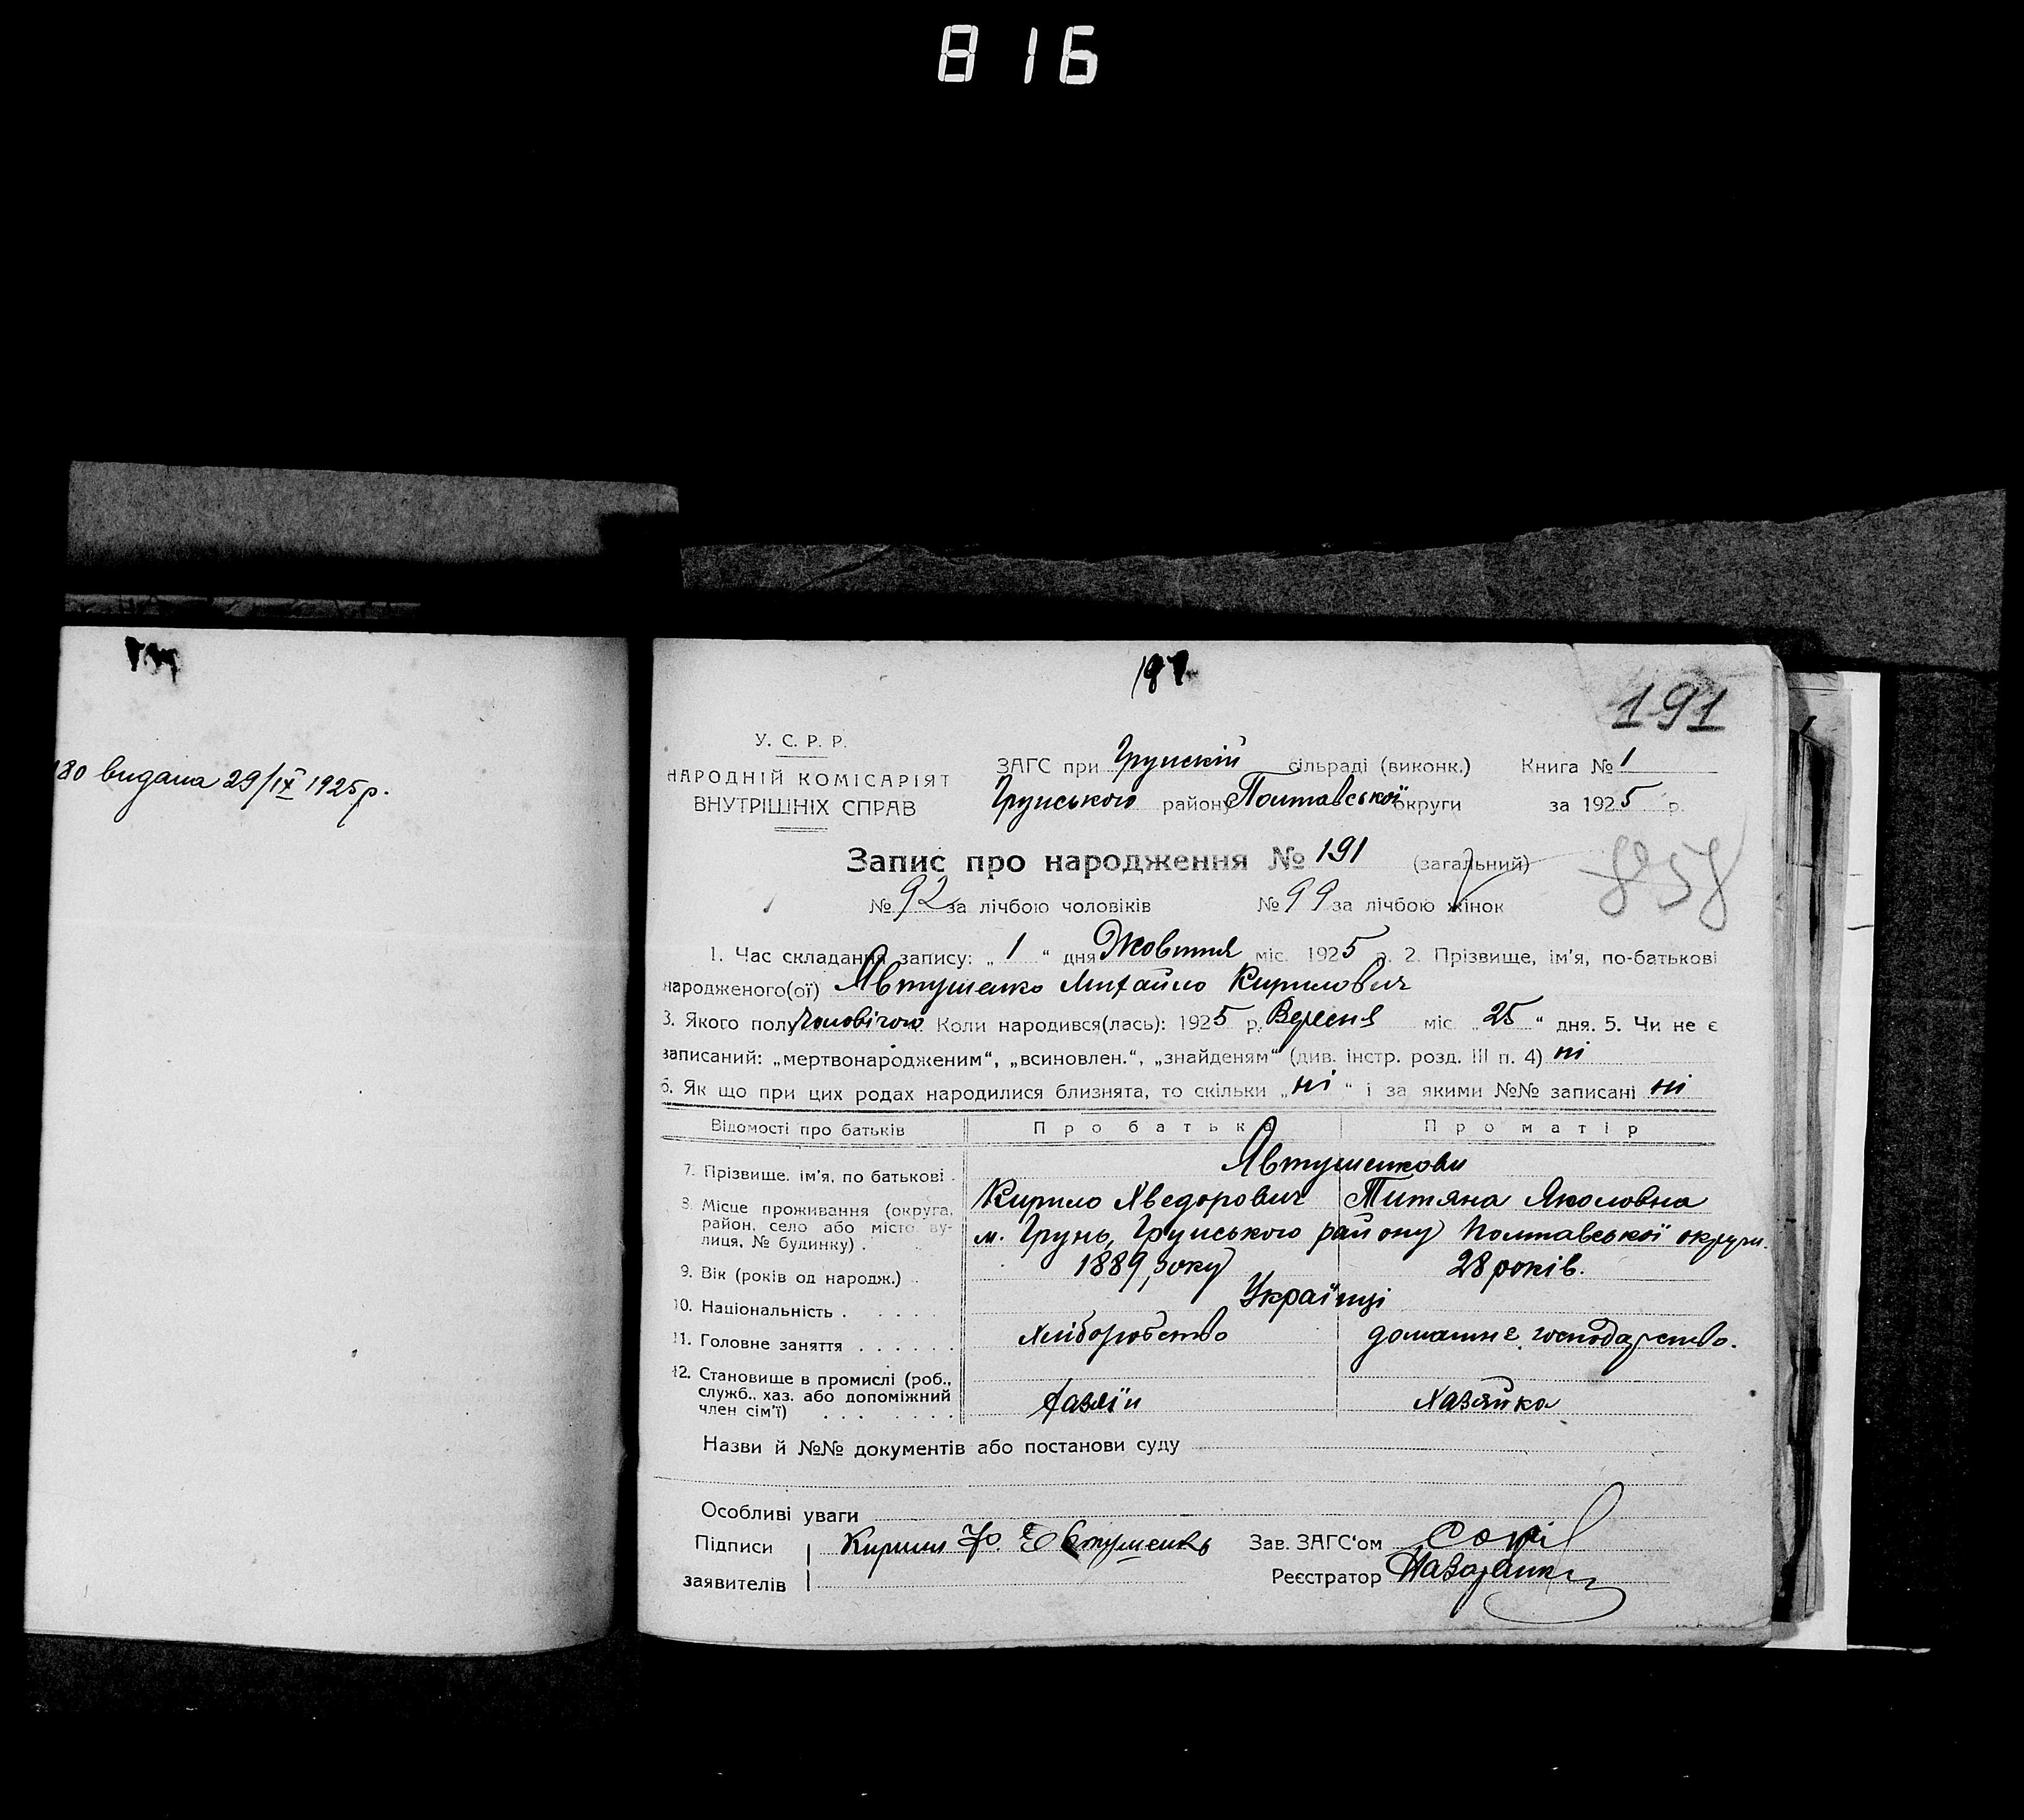 816
180 видана 29/IX 1925 р.
191
У. С. Р. Р.
НАРОДНІЙ КОМІСАРІЯТ
ВНУТРІШНІХ СПРАВ
ЗАГС при Грунскій сільраді (виконк.) Книга № 1
Грунського району Полтавської округи за 1925 р.
Запис про народження № 191 (загальний)
№ 92 за лічбою чоловіків № 99 за лічбою жінок
1. Час складання запису: „ 1 “ дня Жовтня міс. 1925 р. 2. Прізвище, ім'я, по-батькові
народженого(ої) Явтушенко Михайло Кирилович
3. Якого полу Чоловічого Коли народився(лась): 1925 р. Вересня міс. „ 25 “ дня. 5. Чи не є
записаний: „мертвонародженим“, „всиновлен.“, „знайденям“ (див. інстр. розд. III п. 4) ні
6. Як що при цих родах народилися близнята, то скільки „ ні “ і за якими №№ записані ні
Відомості про батьків Про батька Про матір
7. Прізвище, ім'я, по батькові . Явтушенкови
Кирило Хведорович Титяна Яколовна
8. Місце проживання (округа,
район, село або місто ву-
лиця, № будинку) . м. Грунь, Грунського району Полтавської округи.
9. Вік (років од народж.) . 1889, року 28 років.
10. Національність . . . . . Українці
11. Головне заняття . . . . . . Хліборобство домашнє господарство.
12. Становище в промислі (роб.,
служб., хаз. або допоміжний
член сім'ї) . . . . . . . Хазяїн Хазяйка
Назви й №№ документів або постанови суду
Особливі уваги
Підписи Кирил Ф. Евтушенко Зав. ЗАГС'ом
заявителів Реєстратор